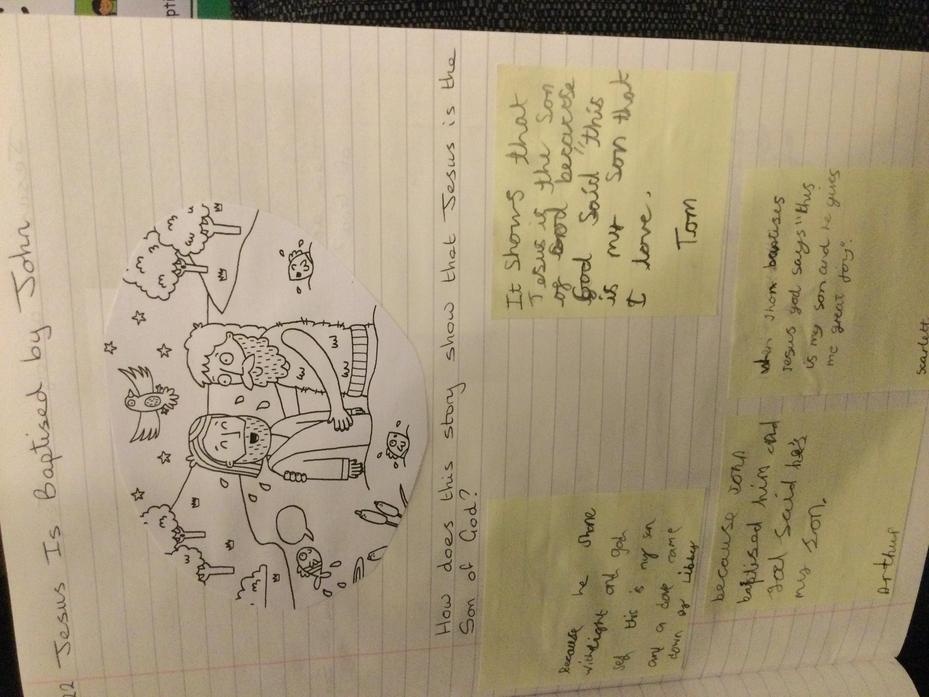 22 Jesus Is Baptised by John
How does this story show that Jesus is the
Son of God?
It shows that
Jesus is the Son
of God because
God said "this
is my Son that
I love.
Tom
because he shone
with light and god
sed this is my son
and a dove came
down by Libby
when Jhon baptises
Jesus god says "this
is my son and he gives
me great joy".
Scarlett
because John
baptised him and
god said he's
my son.
Arthur